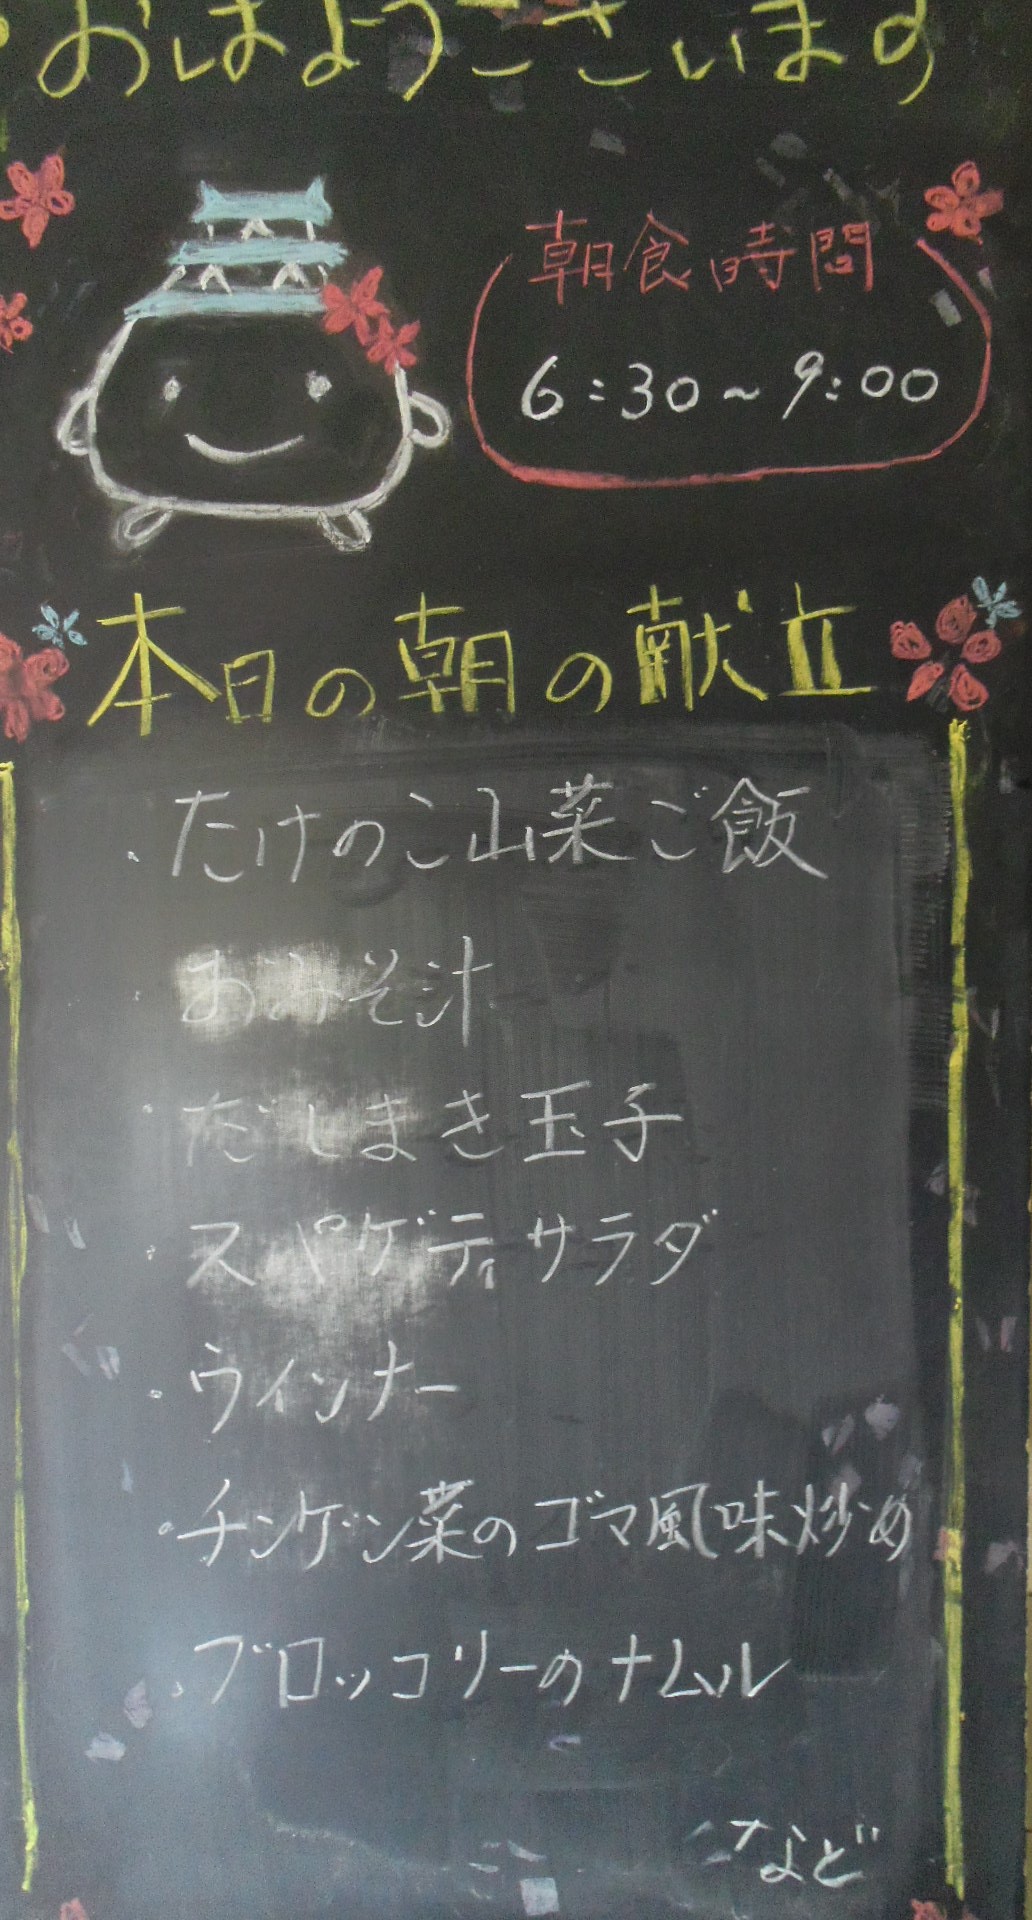 おはようございます
朝食時間
6:30~9:00
本日の朝の献立
・たけのこ山菜ご飯
・おみそ汁
・だしまき玉子
・スパゲティサラダ
・ウインナー
・チンゲン菜のゴマ風味炒め
・ブロッコリーのナムル
など